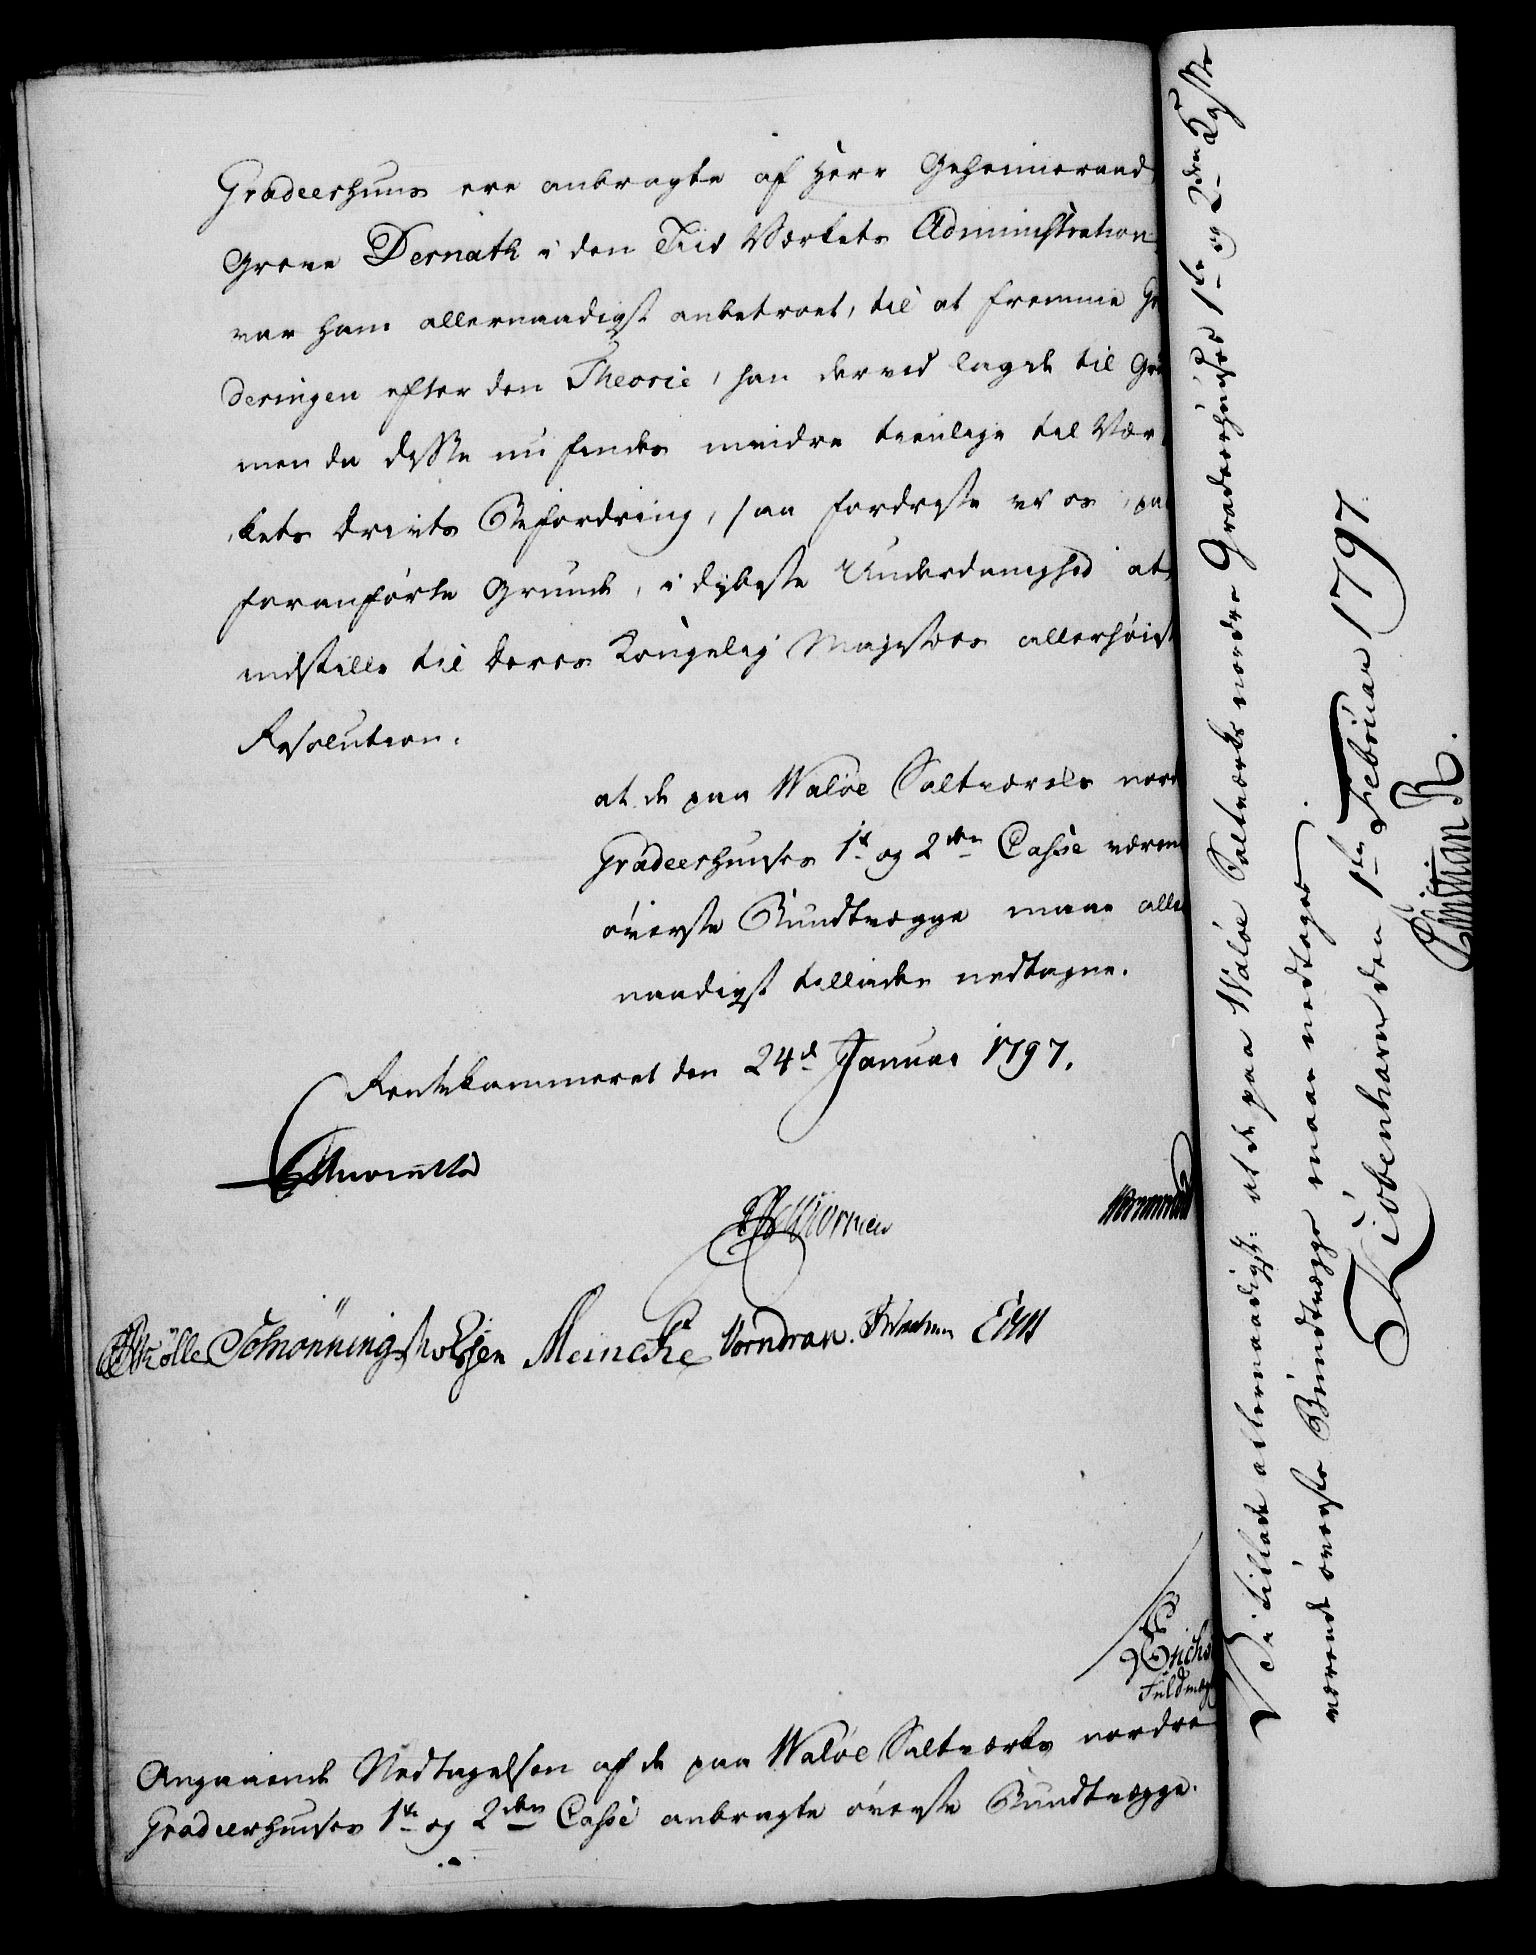 Gradeerhuus ere anbragte af Herr Geheimeraad
Greve Dernath i den Tiid Værkets Administration
var ham allernaadigst anbetroet, til at fremme Gra
deringen efter den Theorie, han derved lagde til Gru
men da disse nu findes mindre tienlige til Vær
kets Drivts Befordring, saa fordriste vi os, paa
foranførte Grunde, i dybeste Underdanighed at
indstille til Deres Kongelig Majestæts allerhøist
Resolution.
at de paa Waløe Saltværks nord
Gradeerhuuses 1te og 2den Casse væren
øverste Bundtvægge maae aller
naadigst tillades nedtagne.
Rentekammeret den 24d Januar 1797.
Wormskiold
Schmönning Meineke Vorndran.
Erichs
Fuldmæg
Angaaende Nedtagelsen af de paa Waløe Saltværks nordre
Gradeerhuuses 1te og 2den Casse anbragte øverste Bundtvægge.
Vi tillade allernaadigst: at de paa Waløe Saltværks nordre Gradeerhuuses 1te og 2den Kasse
værende øverste Bundtvægge maae nedtages.
Kiøbenhavn den 1te Februar 1797
Christian R.